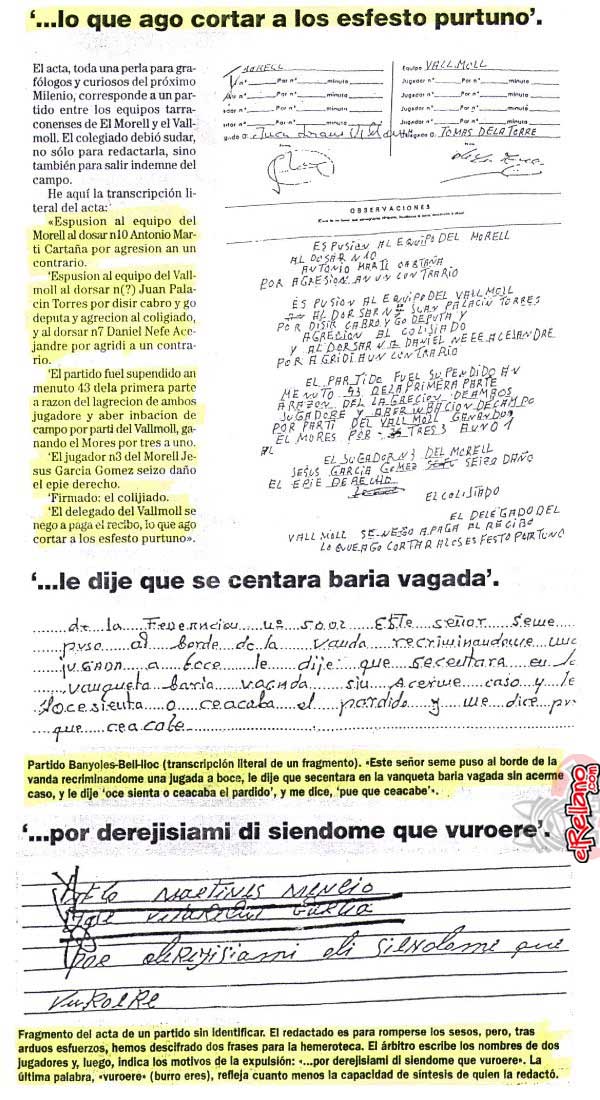 ‘...lo que ago cortar a los esfesto purtuno’.
El acta, toda una perla para gra-
fólogos y curiosos del próximo
Milenio, corresponde a un par-
tido entre los equipos tarra-
conenses de El Morell y el Vall-
moll. El colegiado debió sudar,
no sólo para redactarla, sino
también para salir indemne del
campo.
He aquí la transcripción li-
teral del acta:
«Espusion al equipo del
Morell al dosar n10 Antonio Mar-
ti Cartaña por agresion an un
contrario.
‘Espusion al equipo del Vall-
moll al dorsar n(?) Juan Pala-
cin Torres por disir cabro y go
deputa y agrecion al coligiado,
y al dorsar n7 Daniel Nefe Ace-
jandre por agridi a un contra-
rio.
‘El partido fuel supendido an
menuto 43 dela primera parte
a razon del lagrecion de ambos
jugadore y aber inbacion de
campo por parti del Vallmoll, ga-
nando el Mores por tres a uno.
‘El jugador n3 del Morell Je-
sus Garcia Gomez seizo daño
el epie derecho.
‘Firmado: el colijiado.
‘El delegado del Vallmoll se
nego a paga el recibo, lo que ago
cortar a los esfesto purtuno».
MORELL
Por nº minuto
Por nº minuto
Por nº minuto
Por nº minuto
Equipo VALLMOLL
Jugador nº Por nº minuto
Jugador nº Por nº minuto
Jugador nº Por nº minuto
Jugador nº Por nº minuto
TOMAS DELATORRE
OBSERVACIONES
ESPUSION AL EQUIPO DEL MORELL
AL DOSAR N10
ANTONIO MARTI CARTAÑA
POR AGRESION AN UN CONTRARIO
ESPUSION AL EQUIPO DEL VALLMOLL
AL DORSAR N JUAN PALACIN TORRES
POR DISIR CABRO Y GO DEPUTA Y
AGRECION AL COLISIADO
Y AL DORSAR N7 DANIEL NEFE ACEJANDRE
POR AGRIDI A UN CONTRARIO
EL PARTIDO FUEL SUPENDIDO AN
MENUTO 43 DELA PRIMERA PARTE
ARAZON DEL LAGRECION DE AMBOS
JUGADORE Y ABER INBACION DE CAMPO
POR PARTI DEL VALLMOLL GANANDO
EL MORES POR TRES A UNO
AL
EL JUGADOR N3 DEL MORELL
JESUS GARCIA GOMEZ SEIZO DAÑO
EL EPIE DERECHO
EL COLISIADO
EL DELEGADO DEL
VALLMOLL SE NEGO A PAGA AL RECIBO
LO QUE AGO CORTAR A LOS ESFESTO PORTUNO
‘...le dije que se centara baria vagada’.
de la Este señor seme
puso al borde de la vanda recriminandome una
jugada a boce le dije que secentara en la
vanqueta baria vagada sin Acerme caso y le
oce sienta o ceacaba el pardido y me dice
que ceacabe
Partido Banyoles-Bell-lloc (transcripción literal de un fragmento). «Este señor seme puso al borde de la
vanda recriminandome una jugada a boce, le dije que secentara en la vanqueta baria vagada sin acerme
caso, y le dije ‘oce sienta o ceacaba el pardido’, y me dice, ‘pue que ceacabe’».
elRellano.com
‘...por derejisiami di siendome que vuroere’.
MARTINES
GARCIA
por derejisiami di siendome que
vuroere
Fragmento del acta de un partido sin identificar. El redactado es para romperse los sesos, pero, tras
arduos esfuerzos, hemos descifrado dos frases para la hemeroteca. El árbitro escribe los nombres de dos
jugadores y, luego, indica los motivos de la expulsión: «...por derejisiami di siendome que vuroere». La
última palabra, «vuroere» (burro eres), refleja cuanto menos la capacidad de síntesis de quien la redactó.